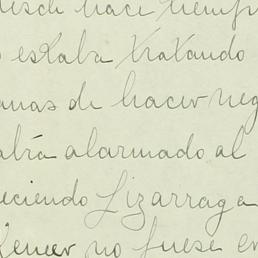 hace tiempo
estaba tratando
de hacer neg
alarmado al
eciendo Lizarraga
no fuese en